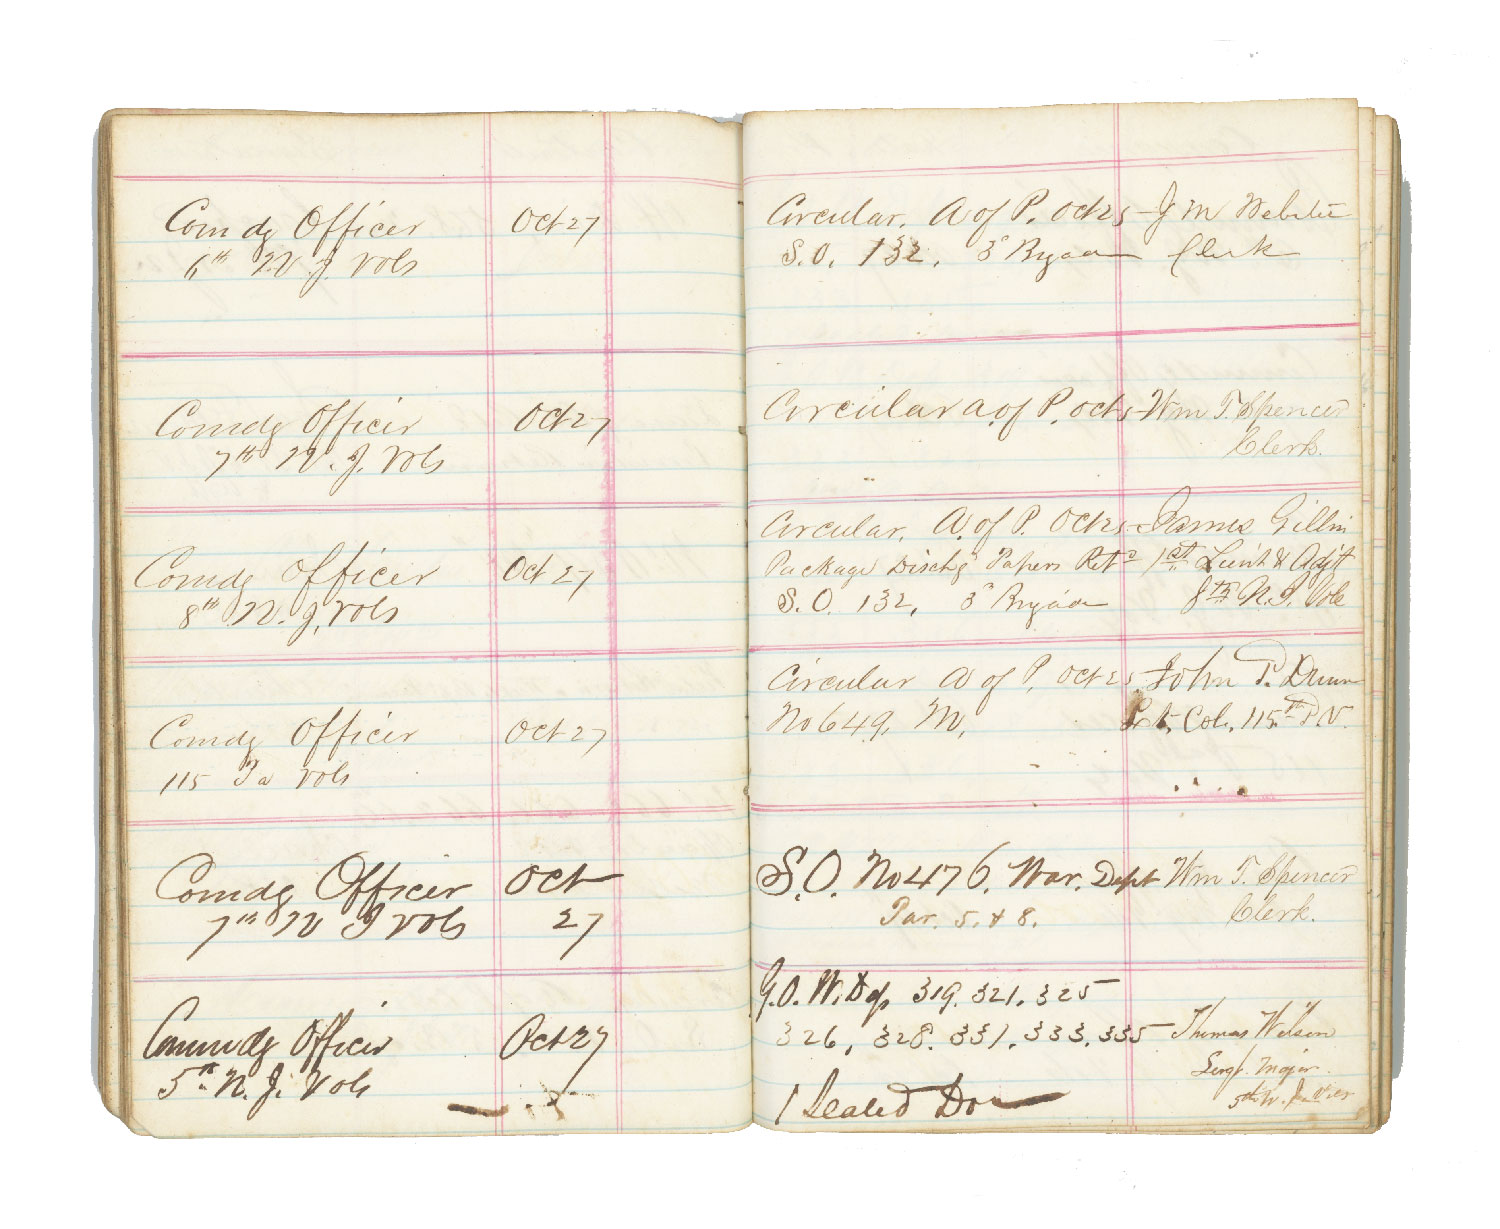 Comdg Officer Oct 27 Circular, A of P. Oct 25 J M Webster
6th N. J. Vols S. O. 132, 3d Brigade Clerk
Comdg Officer Oct 27 Circular A of P. Oct 25 Wm T. Spencer
7th N. J. Vols Clerk.
Circular, A. of P. Oct 25 James Gillin
Comdg Officer Oct 27 Package Dischg Papers Retd 1st Lieut & Adjt
8th N. J. Vols S. O. 132, 3d Brigade 8th N. J. Vols
Circular A of P. Oct 25 John P. Dunn
Comdg Officer Oct 27 No 649, M, Lt. Col. 115th P. V.
115 Pa Vols
Comdg Officer Oct S. O. No 476. War. Dept Wm T. Spencer
7th N J Vols 27 Par. 5. & 8. Clerk.
G. O. W. Dep 319. 321, 325
Commdg Officer Oct 27 326, 328. 331, 333, 335 Thomas Wilson
5th N. J. Vols Sergt. Major
1 Sealed Do 5th N. J. Vols